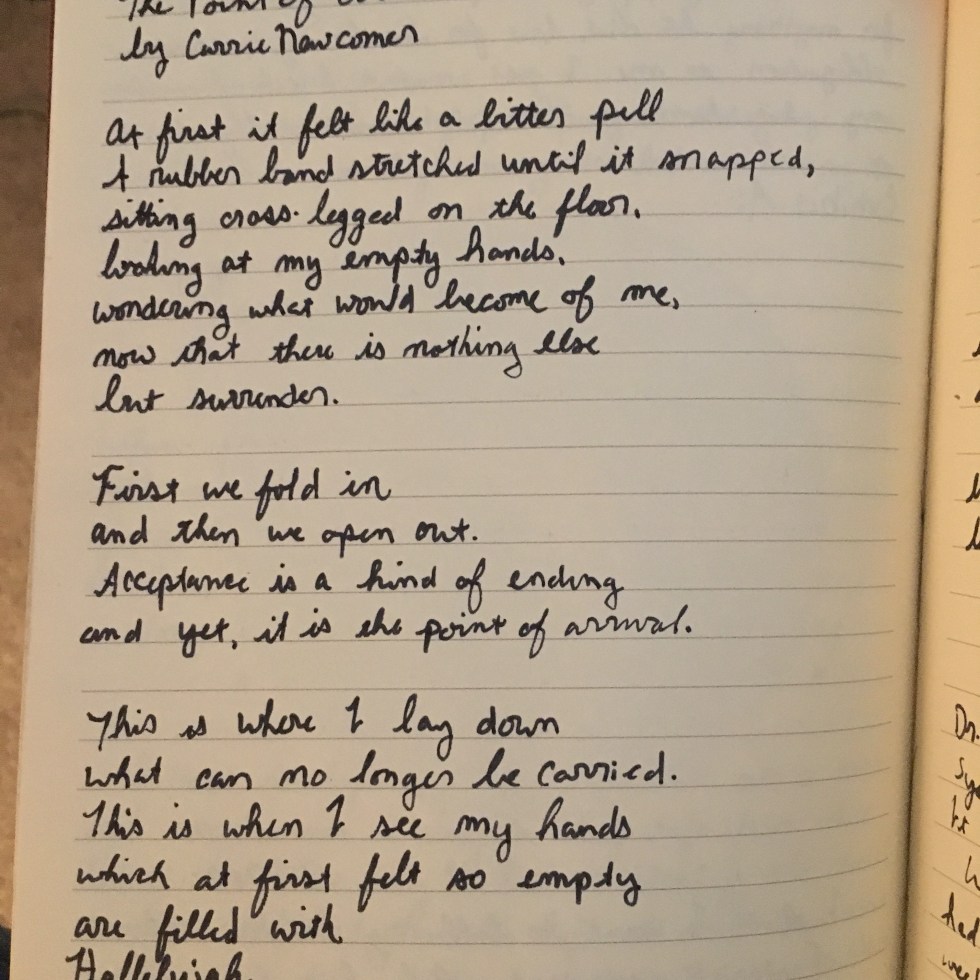 The Point of
by Carrie Newcomer
At first it felt like a bitter pill
A rubber band stretched until it snapped,
sitting cross-legged on the floor,
looking at my empty hands,
wondering what would become of me,
now that there is nothing else
but surrender.
First we fold in
and then we open out.
Acceptance is a kind of ending
and yet, it is the point of arrival.
This is where I lay down
what can no longer be carried.
This is when I see my hands
which at first felt so empty
are filled with
Hallelujah.
Dr.